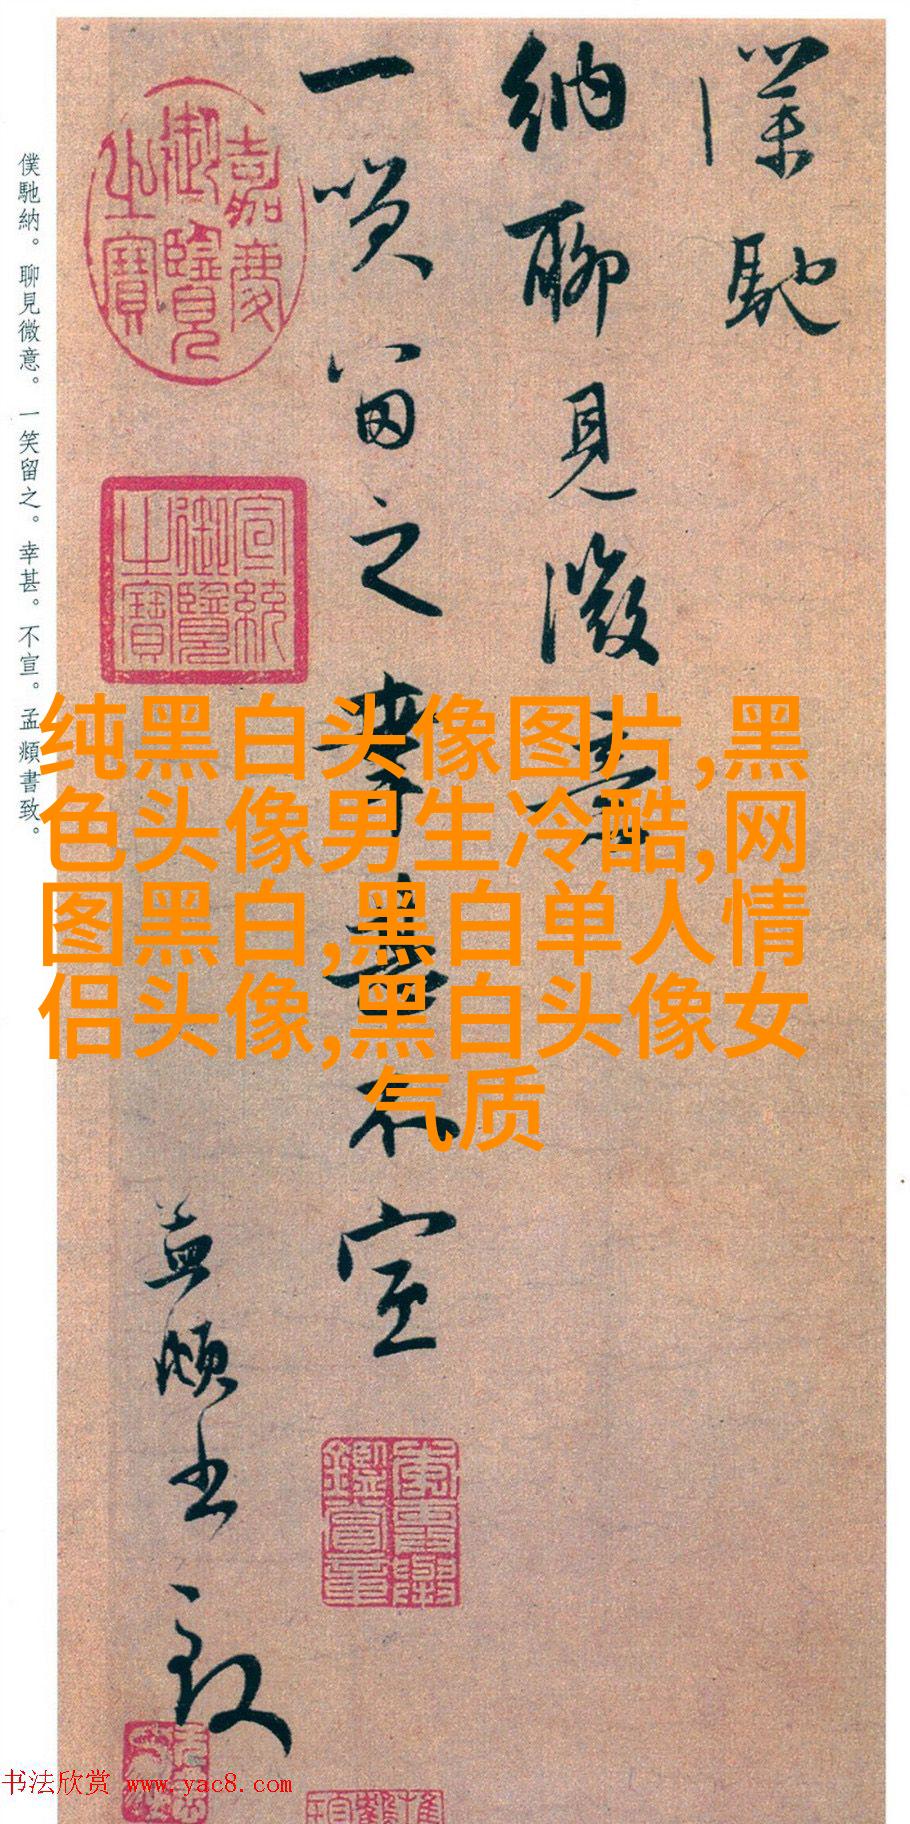 僕馳
納聊見微意
一笑留之幸甚不宣
孟頫書致
嘉慶御覽之寶
宣統御覽之寶
僕馳納。聊見微意。一笑留之。幸甚。不宣。孟頫書致。
纯黑白头像图片,黑
色头像男生冷酷,网
图黑白,黑白单人情
侣头像,黑白头像女
气质
书法欣赏 www.yac8.com